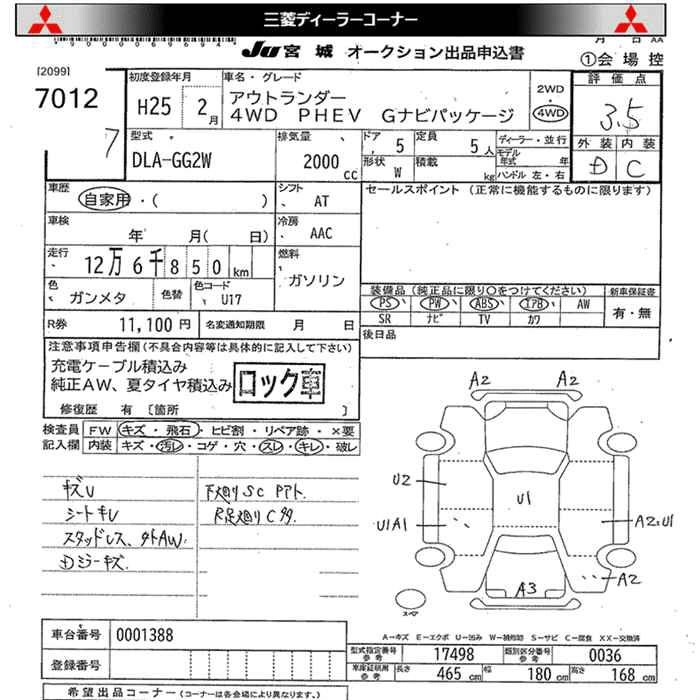 三菱ディーラーコーナー
JU宮城 オークション出品申込書
月 日 AA
①会場控
[2099]
7012
7
初度登録年月
H25 2月
車名・グレード
アウトランダー
4WD PHEV Gナビパッケージ
2WD
・
4WD
評価点
3.5
外装 内装
D C
型式
DLA-GG2W
排気量
2000 cc
ドア 5
定員 5人
形状 W
積載 kg
ディーラー・並行
モデル年式 年
ハンドル 左・右
車歴
自家用・( )
シフト AT
セールスポイント (正常に機能するものに限ります)
車検
年 月( 日)
冷房 AAC
走行
12万6千850km
燃料
ガソリン
色 ガンメタ
色替
色コード U17
装備品 (純正品に限り○をつけてください)
新車保証書
PS PW ABS エアB AW
SR ナビ TV カワ
有・無
R券 11,100円
名変通知期限 月 日
後日品
注意事項申告欄(不具合内容等は具体的に記入して下さい)
充電ケーブル積込み
純正AW、夏タイヤ積込み
ロック車
修復歴 有 〔箇所 〕
検査員 FW キズ・飛石・ヒビ割・リペア跡・×要
記入欄 内装 キズ・汚レ・コゲ・穴・スレ・キレ・破レ
キズU
シートキレ
スタッドレス、外AW.
Dミラーキズ.
下廻りSC
R足廻りC
A2 A2
U2
U1
U1A1
A2.U1
A2
A3
スペア
A-キズ E-エクボ U-凹み W-補修跡 S-サビ C-腐食 XX-交換済
車台番号 0001388
登録番号
型式指定番号 参考 17498
類別区分番号 参考 0036
車庫証明用 参考 長さ 465cm 幅 180cm 高さ 168cm
希望出品コーナー(コーナーは各会場により異なります。)